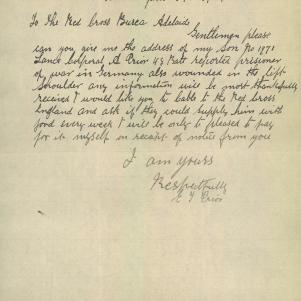 To The Red Cross Burea Adelaide
Gentlemen please
can you give me the address of my Son No 1971
Lance Corporal A Prior 48 Batt reported prisoner
of war in Germany also wounded in the left
Shoulder any information will be most thankfully
received I would like you to Cable to the Red Cross
England and ask if they could supply him with
food every week I will be only to pleased to pay
for it myself on receipt of notice from you
I am yours
Respectfully
Prior